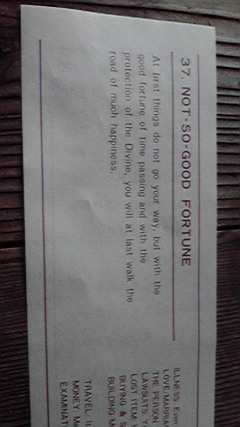 37. NOT-SO-GOOD FORTUNE
At first things do not go your way, but with the
good fortune of time passing and with the
protection of the Divine, you will at last walk the
road of much happiness.
ILLNESS: Even
LOVE MARRIAG
THE PERSON
LAWSUITS: Y
LOST ITEM:
BUYING & S
BUILDING
TRAVEL:
MONEY:
EXAMINAT